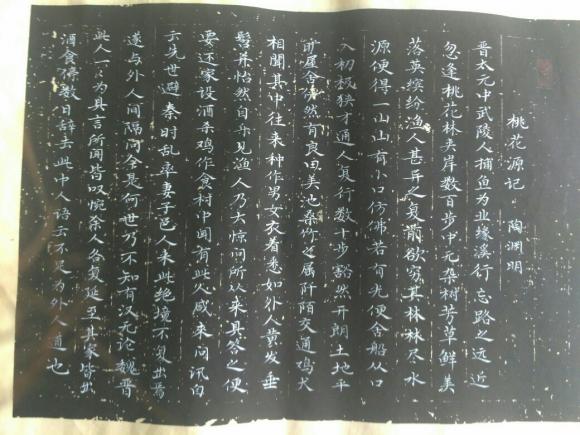 桃花源记 陶渊明
晋太元中武陵人捕鱼为业缘溪行忘路之远近
忽逢桃花林夹岸数百步中无杂树芳草鲜美
落英缤纷渔人甚异之复前欲穷其林林尽水
源便得一山山有小口仿佛若有光便舍船从口
入初极狭才通人复行数十步豁然开朗土地平
旷屋舍俨然有良田美也桑竹之属阡陌交通鸡犬
相聞其中往来种作男女衣着悉如外人黄发垂
髫并怡然自乐见渔人乃大惊问所从来具答之便
要还家设酒杀鸡作食村中闻有此人咸来问讯自
云先世避秦时乱率妻子邑人来此绝境不复出焉
遂与外人间隔问今是何世乃不知有汉无论魏晋
此人一一为具言所闻皆叹惋余人各复延至其家皆出
酒食停数日辞去此中人语云不足为外人道也